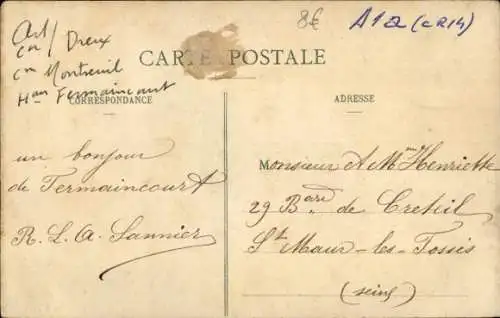 Art/ Dreux
Con
Con Montreuil
Ham Fermaincourt
8€
A12 (CR14)
CARTE POSTALE
CORRESPONDANCE
ADRESSE
un bonjour
de Fermaincourt
R. L. A. Lannier
Monsieur et Mme Henriette
29 Bard de Creteil
St Maur-les-Fossés
(seine)